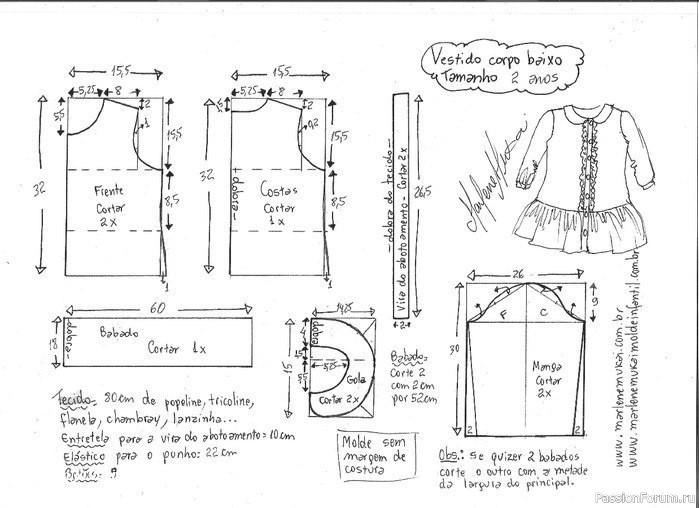 Vestido corpo baixo
Tamanho 2 anos
15,5
5,25
8
2
5,5
1
15,5
32
8,5
1
Frente
Cortar
2x
15,5
5,25
8
2
1,5
0,2
15,5
32
8,5
1
dobra
Costas
Cortar
1x
dobra do tecido
Vira do abotoamento - Cortar 2x
26,5
2
Marlene Mukai
60
18
dobra
Babado
Cortar 1x
14,25
15
dobra
5,25
Gola
Cortar 2x
Babados:
Corte 2
com 2cm
por 52cm
26
9
30
F
C
Manga
Cortar
2x
2
2
www.marlenemukai.com.br
www.marlenemukaimoldeinfantil.com.br
Tecido: 80cm de popeline, tricoline,
flanela, chambray, lanzinha...
Entretela para a vira do abotoamento = 10cm
Elástico para o punho: 22cm
Botões: 9
Molde sem
margem de
costura
Obs.: Se quizer 2 babados
corte o outro com a metade
da largura do principal.
PassionForum.ru